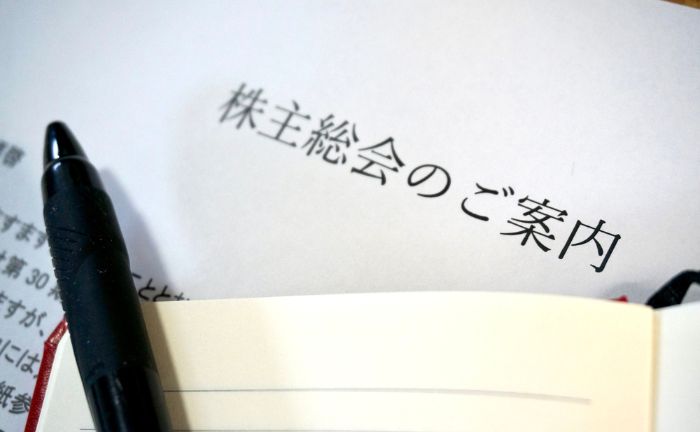 株主総会のご案内
ますます
第30
こととな
ますが、
には
紙参